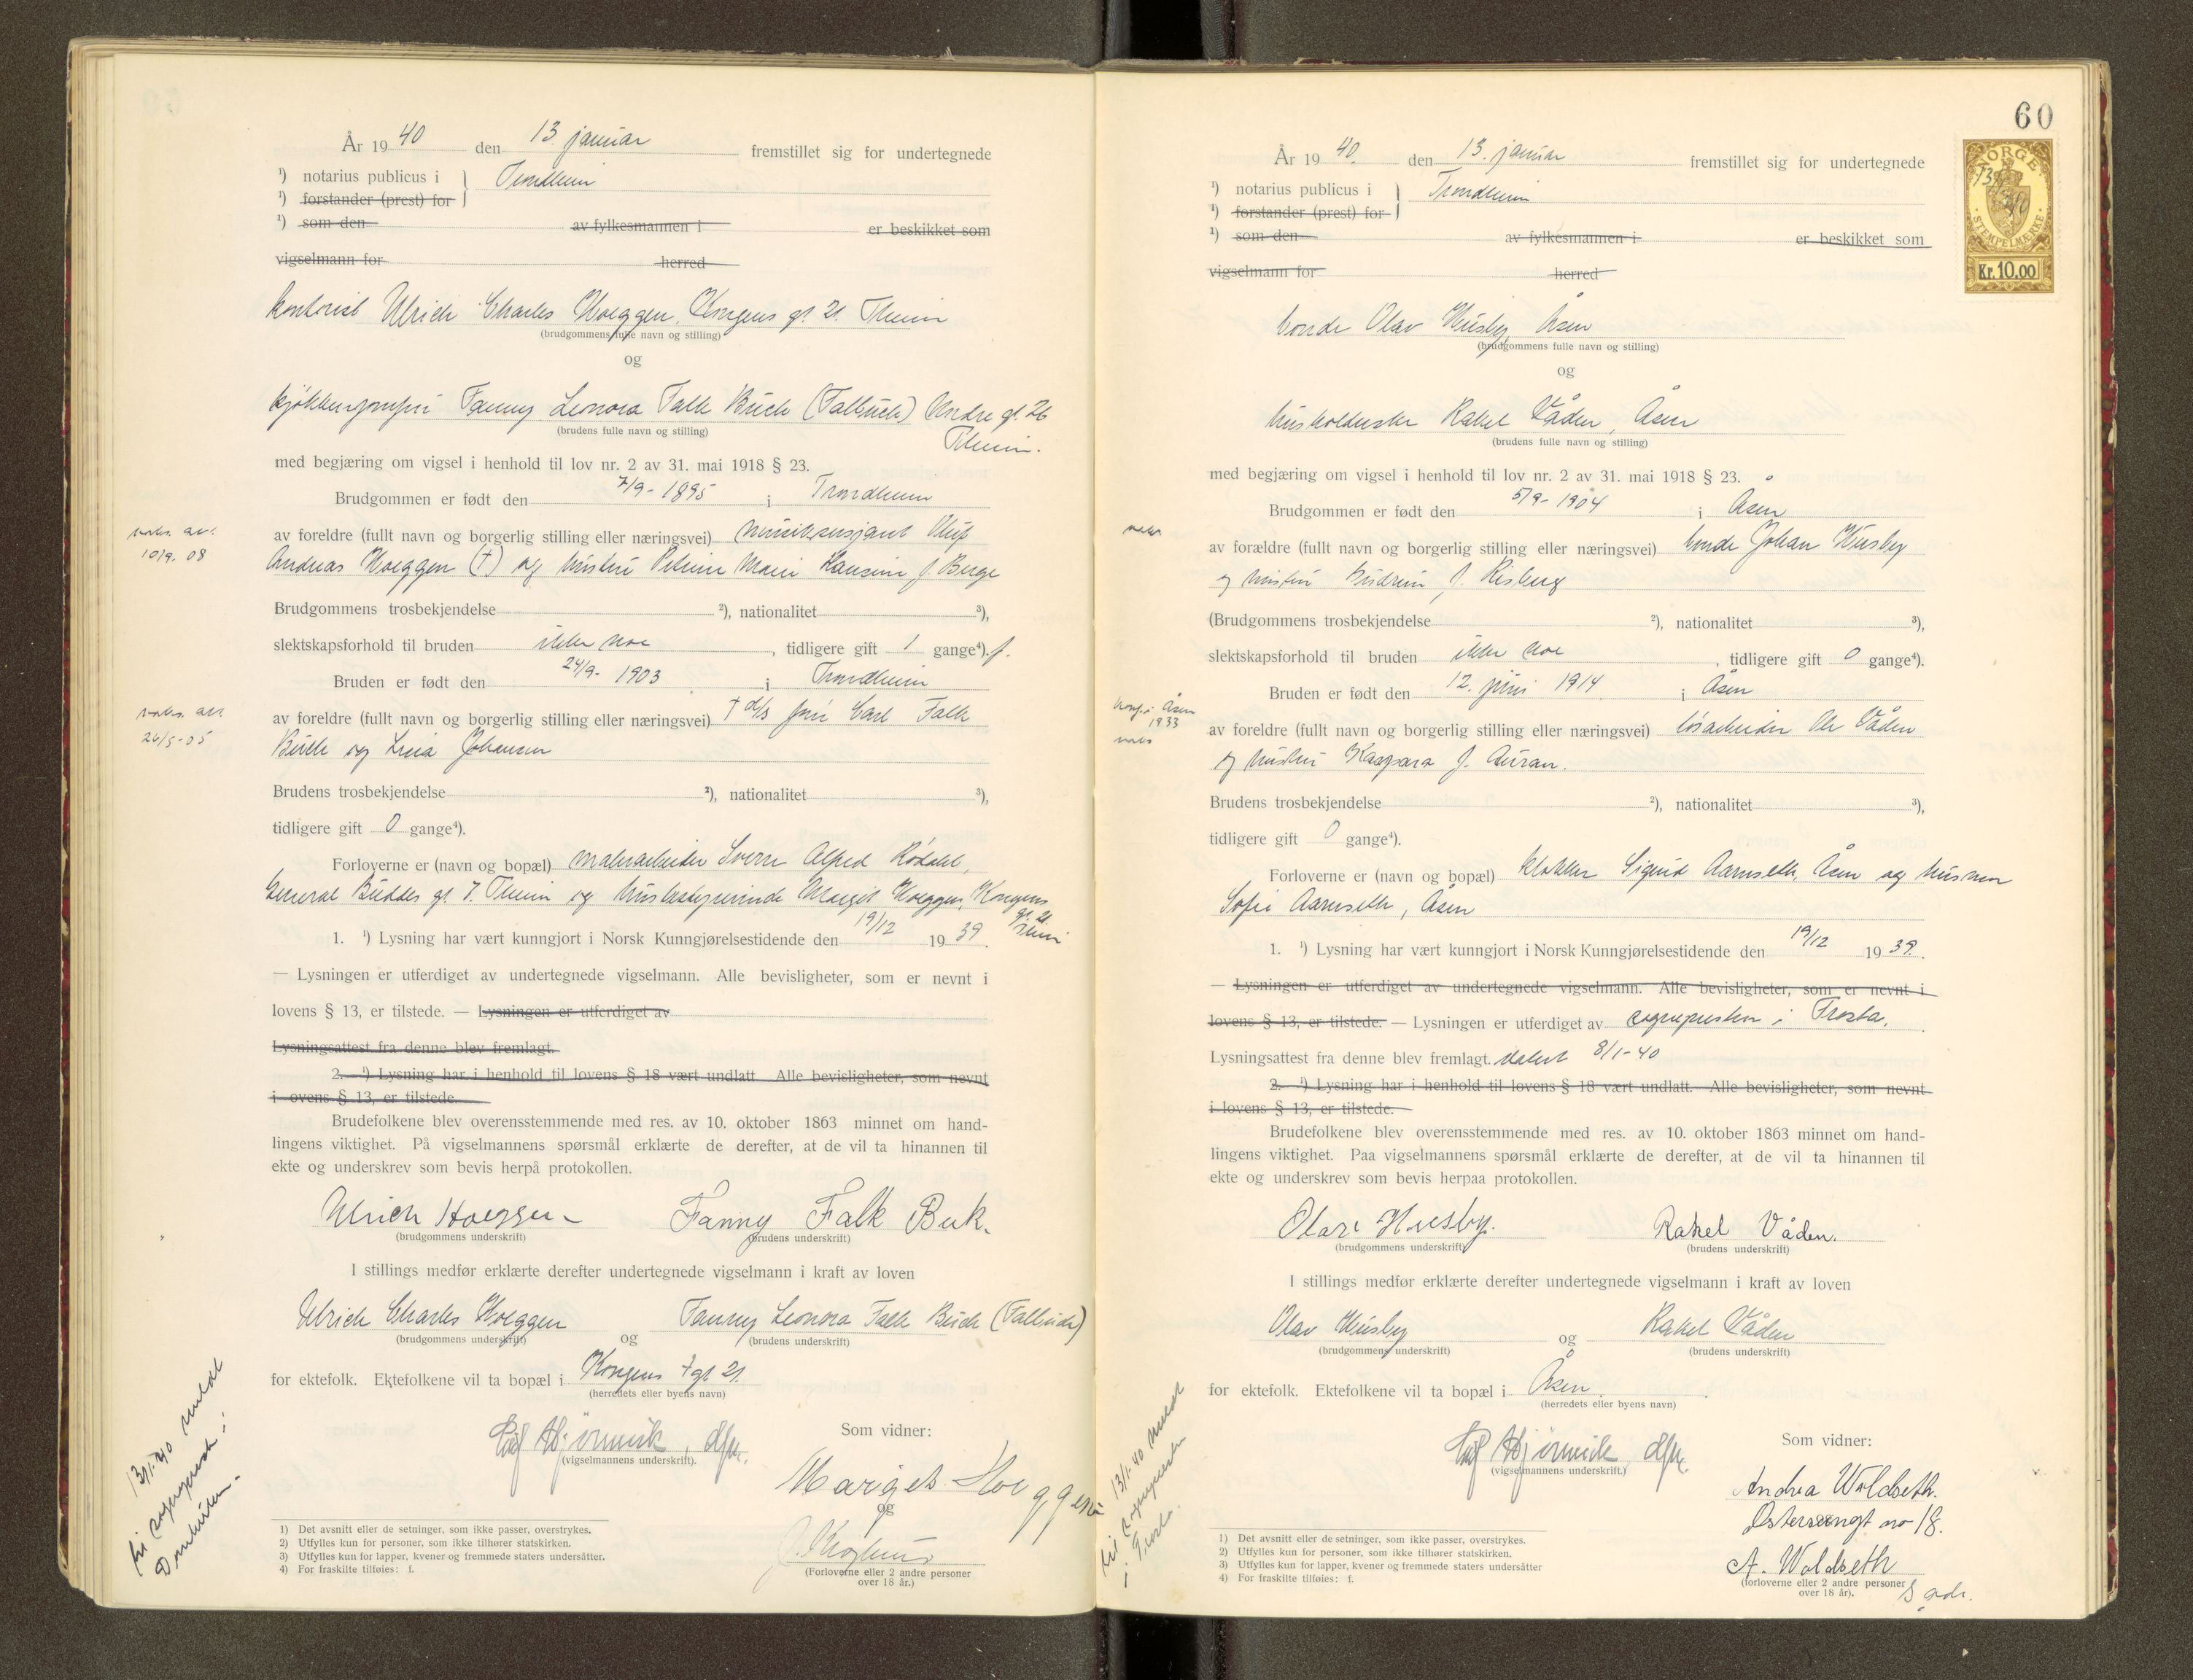 År 1940 den 13. januar fremstillet sig for undertegnede
¹) notarius publicus i Trondheim
¹) forstander (prest) for
¹) som den av fylkesmannen i er beskikket som
vigselmann for herred
kontorist Ulrich Charles Hoeggen, Kongens gt. 21. Theim
(brudgommens fulle navn og stilling)
og
Fanny Leonora Falk Buck (Falbuck) Andre gt. 26
Theim.
(brudens fulle navn og stilling)
med begjæring om vigsel i henhold til lov nr. 2 av 31. mai 1918 § 23.
Brudgommen er født den 7/9-1895 i Trondheim
av foreldre (fullt navn og borgerlig stilling eller næringsvei) musiksersjant Oluf
Andreas Hoeggen (†) og hustru Petrine Marie Hansine f. Berge
Brudgommens trosbekjendelse ²), nationalitet ³),
slektskapsforhold til bruden ikke noe, tidligere gift 1 gange⁴). f.
Bruden er født den 24/9-1903 i Trondheim
av foreldre (fullt navn og borgerlig stilling eller næringsvei) Carl Falk
Buck og Johansen
Brudens trosbekjendelse ²), nationalitet ³),
tidligere gift 0 gange⁴).
Forloverne er (navn og bopæl) malerarbeider Sverre Alfred
General Buddes gt. 7. Theim og husbestyrerinde Margit Hoeggen, Kongens
gt. 21.
Theim
1. ¹) Lysning har vært kunngjort i Norsk Kunngjørelsestidende den 19/12 1939.
— Lysningen er utferdiget av undertegnede vigselmann. Alle bevisligheter, som er nevnt i
lovens § 13, er tilstede. — Lysningen er utferdiget av
Lysningsattest fra denne blev fremlagt.
2. ¹) Lysning har i henhold til lovens § 18 vært undlatt Alle bevisligheter, som nevnt
i ovens § 13, er tilstede.
Brudefolkene blev overensstemmende med res. av 10. oktober 1863 minnet om hand-
lingens viktighet. På vigselmannens spørsmål erklærte de derefter, at de vil ta hinannen til
ekte og underskrev som bevis herpå protokollen.
Ulrich Hoeggen Fanny Falk Buk.
(brudgommens underskrift) (brudens underskrift)
I stillings medfør erklærte derefter undertegnede vigselmann i kraft av loven
Ulrich Charles Hoeggen og Fanny Leonora Falk Buck (Falbuck)
(brudgommens underskrift) (brudens underskrift)
for ektefolk. Ektefolkene vil ta bopæl i Kongens gt 21.
(herredets eller byens navn)
(vigselmannens underskrift).
Som vidner:
Margit Hoeggen
og
(Forloverne eller 2 andre personer
over 18 år.)
10/9. 08
26/5-05
13/1-40 meldt
til sogneprest i
1) Det avsnitt eller de setninger, som ikke passer, overstrykes.
2) Utfylles kun for personer, som ikke tilhører statskirken.
3) Utfylles kun for lapper, kvener og fremmede staters undersåtter.
4) For fraskilte tilføies: f.
60
NORGE
STEMPELMERKE
Kr. 10.00
År 1940. den 13. januar fremstillet sig for undertegnede
¹) notarius publicus i Trondheim
¹) forstander (prest) for
¹) som den av fylkesmannen i er beskikket som
vigselmann for herred
bonde Olav Husby Åsen
(brudgommens fulle navn og stilling)
og
husholderske Rakel Våden, Åsen
(brudens fulle navn og stilling)
med begjæring om vigsel i henhold til lov nr. 2 av 31. mai 1918 § 23.
Brudgommen er født den 5/9-1904 i Åsen
av forældre (fullt navn og borgerlig stilling eller næringsvei) bonde Johan Husby
og hustru f. Risberg
(Brudgommens trosbekjendelse ²), nationalitet ³),
slektskapsforhold til bruden ikke noe, tidligere gift 0 gange⁴).
Bruden er født den 12. juni 1914 i Åsen
av foreldre (fullt navn og borgerlig stilling eller næringsvei) løsarbeider Ole Våden
og hustru Kaspara f. Auran.
Brudens trosbekjendelse ²), nationalitet ³),
tidligere gift 0 gange⁴).
Forloverne er (navn og bopæl) klokker Sigurd Aarnseth, Åsen og husmor
Sofie Aarnseth, Åsen
1. ¹) Lysning har vært kunngjort i Norsk Kunngjørelsestidende den 19/12 1939.
— Lysningen er utferdiget av undertegnede vigselmann. Alle bevisligheter, som er nevnt i
lovens § 13, er tilstede. — Lysningen er utferdiget av sognepresten i Frosta.
Lysningsattest fra denne blev fremlagt. datert 8/1-40
2. ¹) Lysning har i henhold til lovens § 18 vært undlatt. Alle bevisligheter, som nevnt
i lovens § 13, er tilstede.
Brudefolkene blev overensstemmende med res. av 10. oktober 1863 minnet om hand-
lingens viktighet. Paa vigselmannens spørsmål erklærte de derefter, at de vil ta hinannen til
ekte og underskrev som bevis herpaa protokollen.
Olav Husby. Rakel Våden.
(brudgommens underskrift) (brudens underskrift)
I stillings medfør erklærte derefter undertegnede vigselmann i kraft av loven
Olav Husby og Rakel Våden
(brudgommens underskrift) (brudens underskrift)
for ektefolk. Ektefolkene vil ta bopæl i Åsen.
(herredets eller byens navn)
(vigselmannens underskrift.)
Som vidner:
Andrea Woldseth.
no 18.
A. Woldseth
(forloverne eller 2 andre personer
over 18 år).
konf. i Åsen
1933
13/1-40 meldt
til sognepresten
i Frosta.
1) Det avsnitt eller de setninger, som ikke passer, overstrykes.
2) Utfylles kun for personer, som ikke tilhører statskirken.
3) Utfylles kun for lapper, kvener og fremmede staters undersåtter
4) For fraskilte tilføies: f.